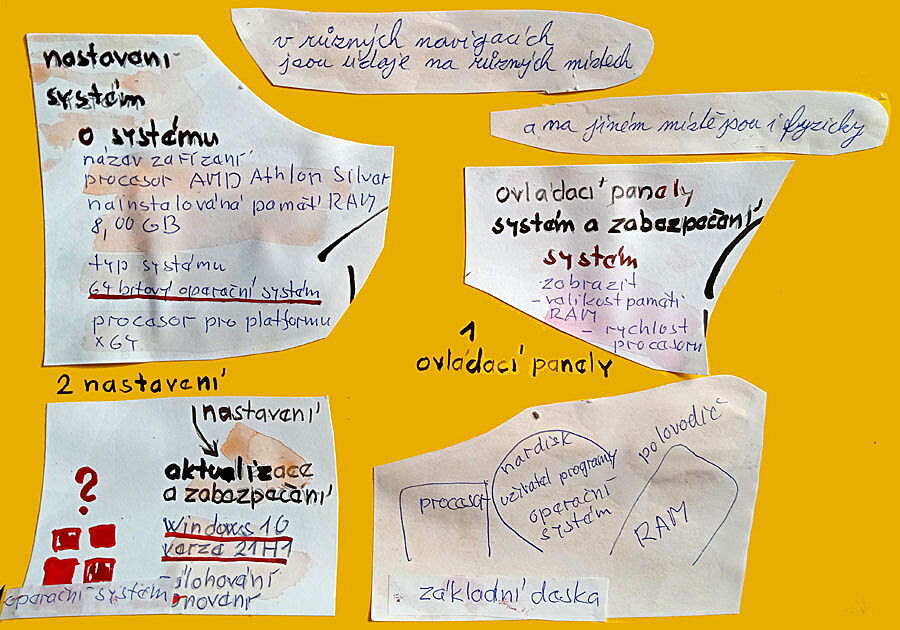 v různých navigacích
jsou údaje na různých místech
a na jiném místě jsou i fyzicky
nastavení
systém
o systému
název zařízení
procesor AMD Athlon Silver
nainstalovaná paměť RAM
8,00 GB
typ systému
64 bitový operační systém
procesor pro platformu
x64
ovládací panely
systém a zabezpečení
systém
zobrazit
- velikost paměti
RAM
- rychlost
procesoru
1
ovládací panely
2 nastavení
nastavení
aktualizace
a zabezpečení
windows 10
verze 21H1
?
operační systém
hardisk
uživatel programy
operační
systém
procesor
polovodič
RAM
základní deska